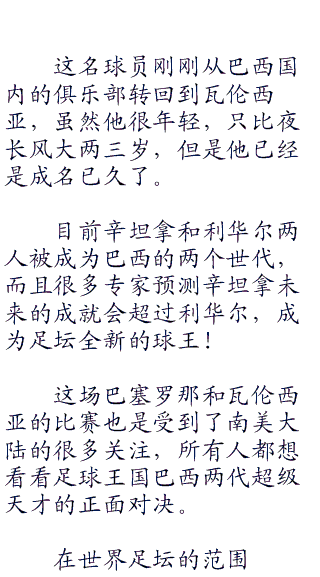 这名球员刚刚从巴西国
内的俱乐部转回到瓦伦西
亚，虽然他很年轻，只比夜
长风大两三岁，但是他已经
是成名已久了。
目前辛坦拿和利华尔两
人被成为巴西的两个世代，
而且很多专家预测辛坦拿未
来的成就会超过利华尔，成
为足坛全新的球王！
这场巴塞罗那和瓦伦西
亚的比赛也是受到了南美大
陆的很多关注，所有人都想
看看足球王国巴西两代超级
天才的正面对决。
在世界足坛的范围